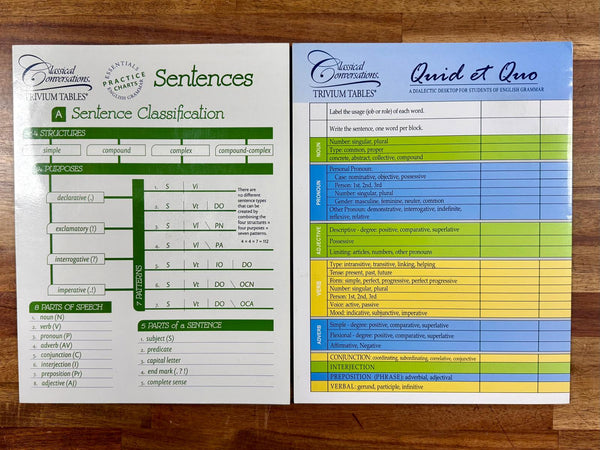 Classical
Conversations.
TRIVIUM TABLES®
ESSENTIALS
PRACTICE
CHARTS
ENGLISH GRAMMAR
Sentences
A Sentence Classification
4 STRUCTURES
simple compound complex compound-complex
4 PURPOSES
declarative (.)
exclamatory (!)
interrogative (?)
imperative (.!)
7 PATTERNS
1. S Vi
2. S Vt DO
3. S Vl PN
4. S Vl PA
5. S Vt IO DO
6. S Vt DO OCN
7. S Vt DO OCA
There are
112 different
sentence types
that can be
created by
combining the
four structures +
four purposes +
seven patterns.
4 × 4 × 7 = 112
8 PARTS OF SPEECH
1. noun (N)
2. verb (V)
3. pronoun (P)
4. adverb (AV)
5. conjunction (C)
6. interjection (I)
7. preposition (Pr)
8. adjective (AJ)
5 PARTS of a SENTENCE
1. subject (S)
2. predicate
3. capital letter
4. end mark (. ? !)
5. complete sense
Classical
Conversations.
TRIVIUM TABLES®
Quid et Quo
A DIALECTIC DESKTOP FOR STUDENTS OF ENGLISH GRAMMAR
Label the usage (job or role) of each word.
Write the sentence, one word per block.
NOUN
Number: singular, plural
Type: common, proper
concrete, abstract, collective, compound
PRONOUN
Personal Pronoun:
Case: nominative, objective, possessive
Person: 1st, 2nd, 3rd
Number: singular, plural
Gender: masculine, feminine, neuter, common
Other Pronoun: demonstrative, interrogative, indefinite,
reflexive, relative
ADJECTIVE
Descriptive - degree: positive, comparative, superlative
Possessive
Limiting: articles, numbers, other pronouns
VERB
Type: intransitive, transitive, linking, helping
Tense: present, past, future
Form: simple, perfect, progressive, perfect progressive
Number: singular, plural
Person: 1st, 2nd, 3rd
Voice: active, passive
Mood: indicative, subjunctive, imperative
ADVERB
Simple - degree: positive, comparative, superlative
Flexional - degree: positive, comparative, superlative
Affirmative, Negative
CONJUNCTION: coordinating, subordinating, correlative, conjunctive
INTERJECTION
PREPOSITION (PHRASE): adverbial, adjectival
VERBAL: gerund, participle, infinitive